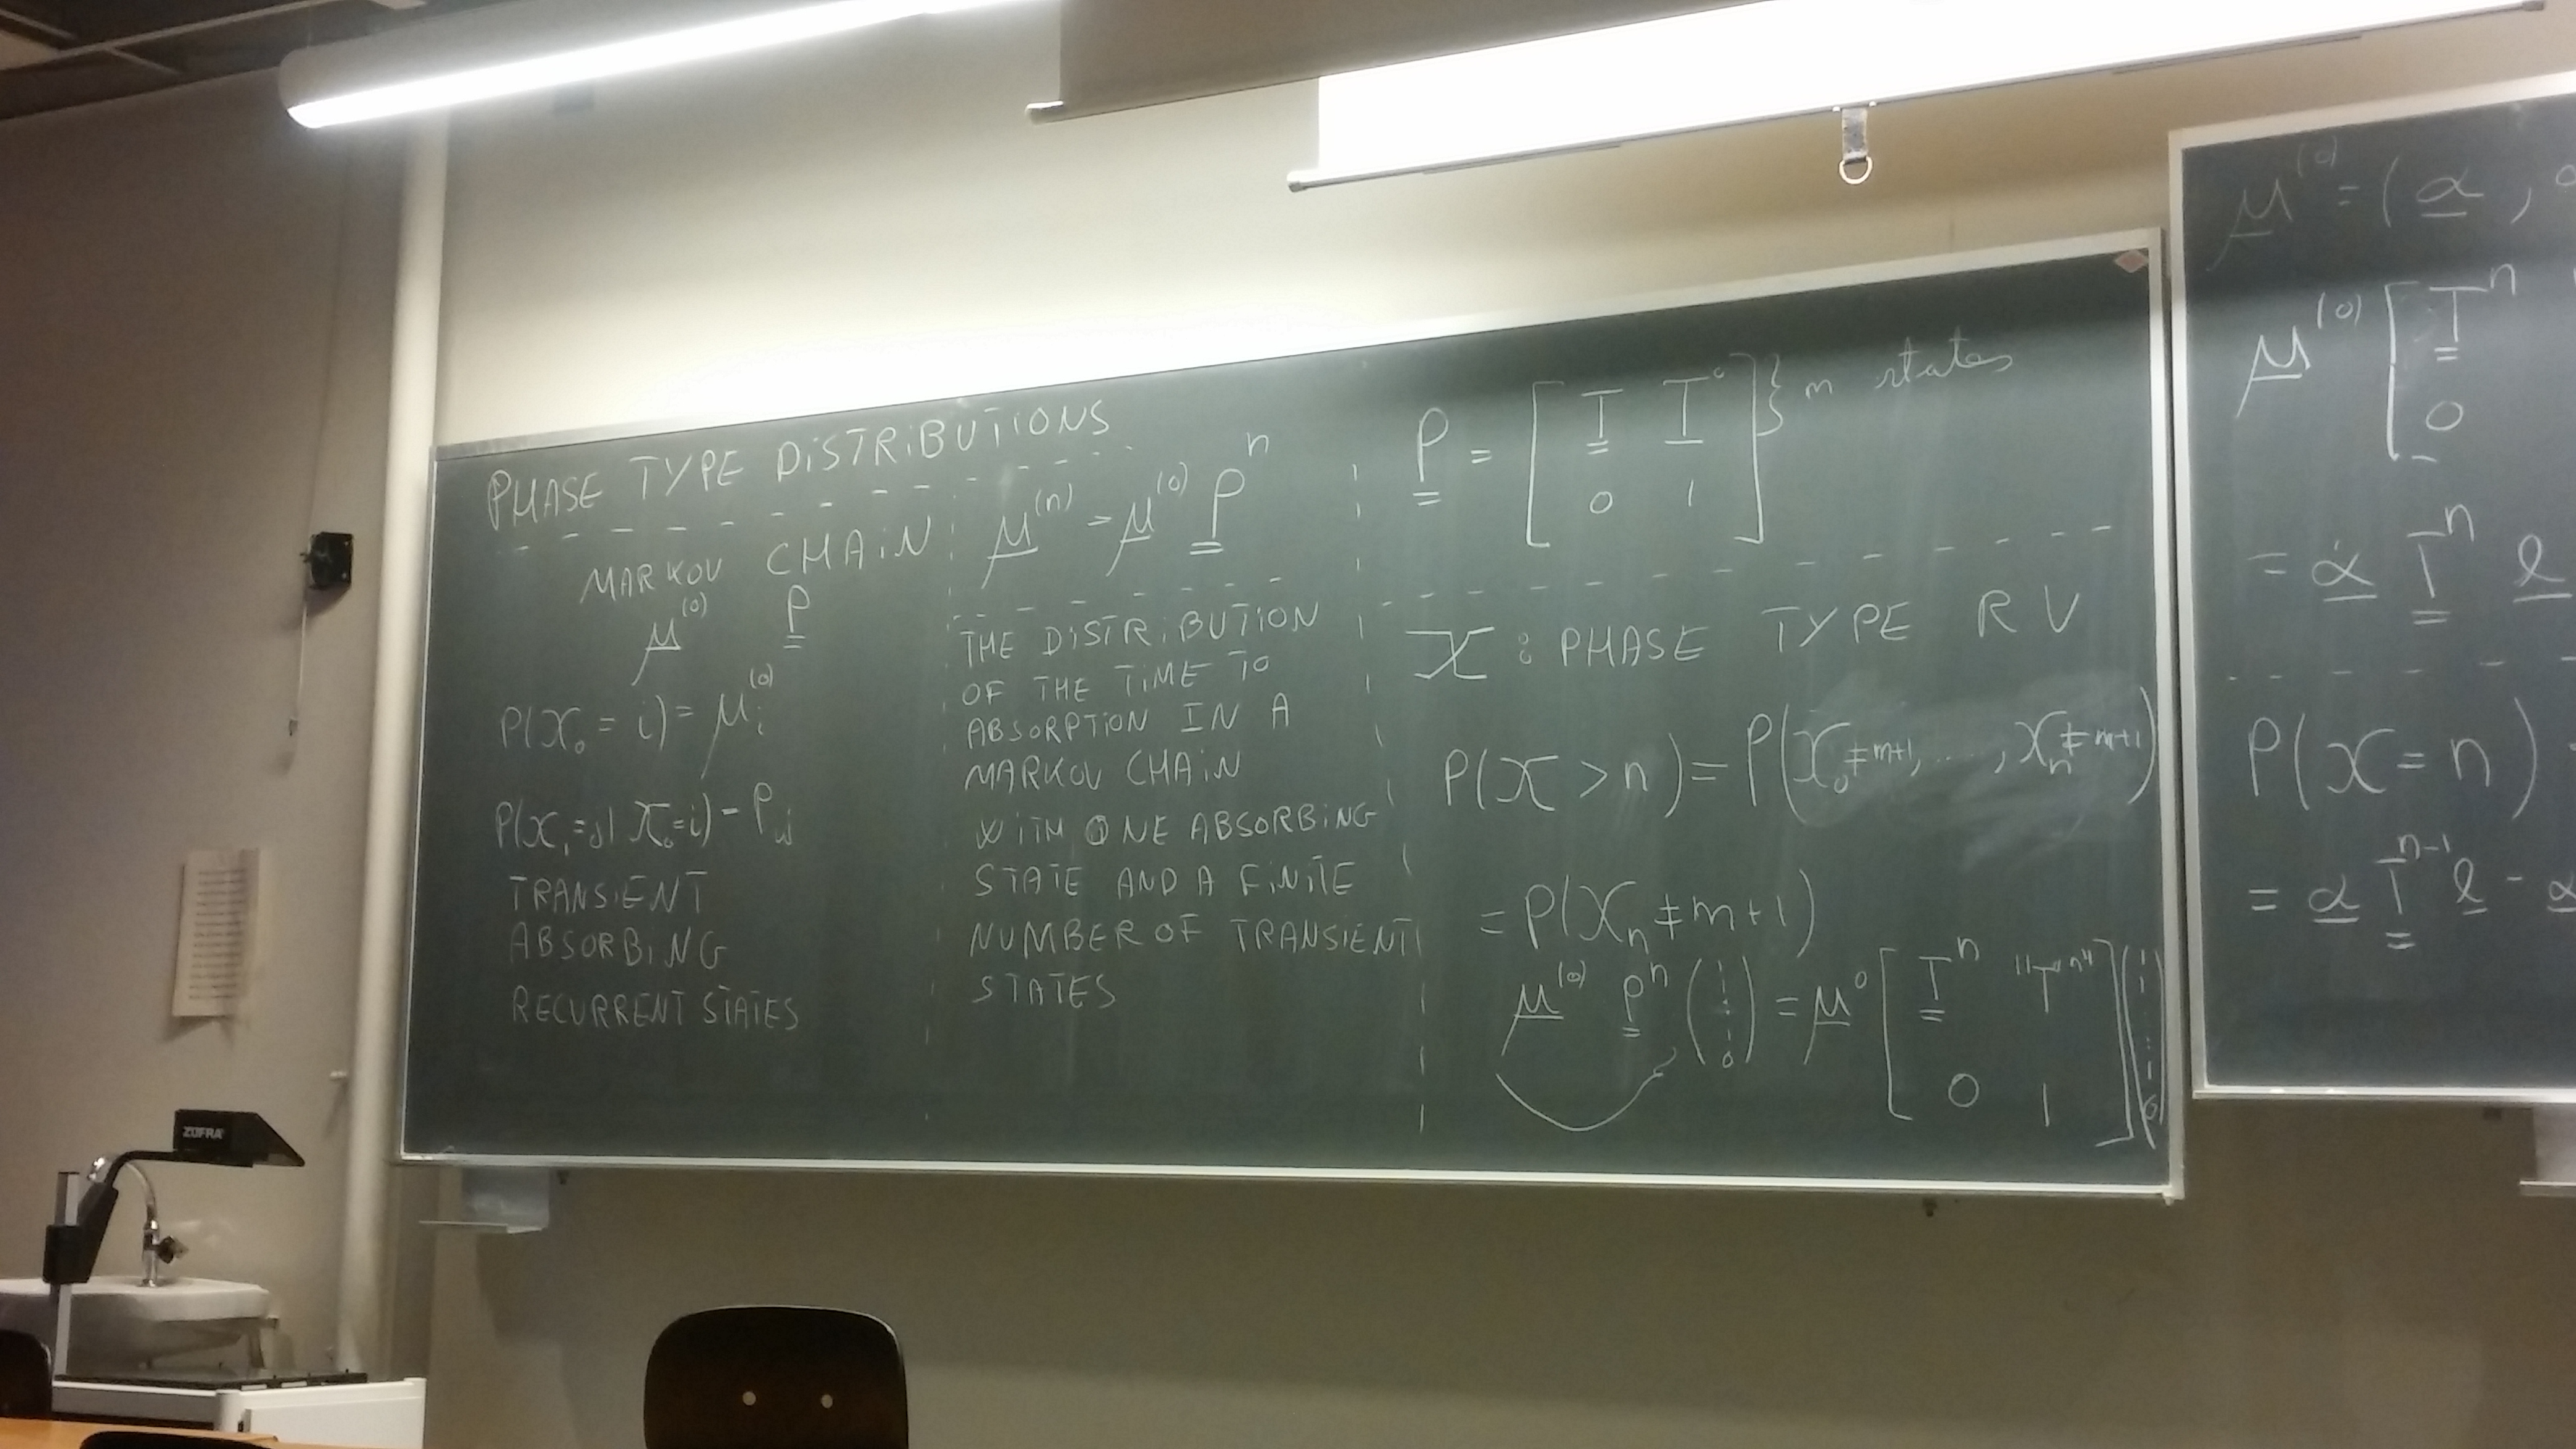 PHASE TYPE DISTRIBUTIONS
MARKOV CHAIN
μ^(0) P
P(X₀ = i) = μᵢ^(0)
P(X₁ = j | X₀ = i) = Pᵢⱼ
TRANSIENT
ABSORBING
RECURRENT STATES
μ^(n) = μ^(0) P^n
THE DISTRIBUTION
OF THE TIME TO
ABSORPTION IN A
MARKOV CHAIN
WITH ONE ABSORBING
STATE AND A FINITE
NUMBER OF TRANSIENT
STATES
P = [ T T° ; 0 1 ] } m states
X : PHASE TYPE RV
P(X > n) = P(X₀ ≠ m+1, ...., Xₙ ≠ m+1)
= P(Xₙ ≠ m+1)
μ^(0) P^n (1 ⋮ 1 0) = μ^0 [ T^n "T°n" ; 0 1 ] (1 1 ⋮ 1 0)
μ^(0) = ( α ,
μ^(0) [ T^n
0
= α T^n e
P(X = n)
= α T^{n-1} e - α
ZOFRA